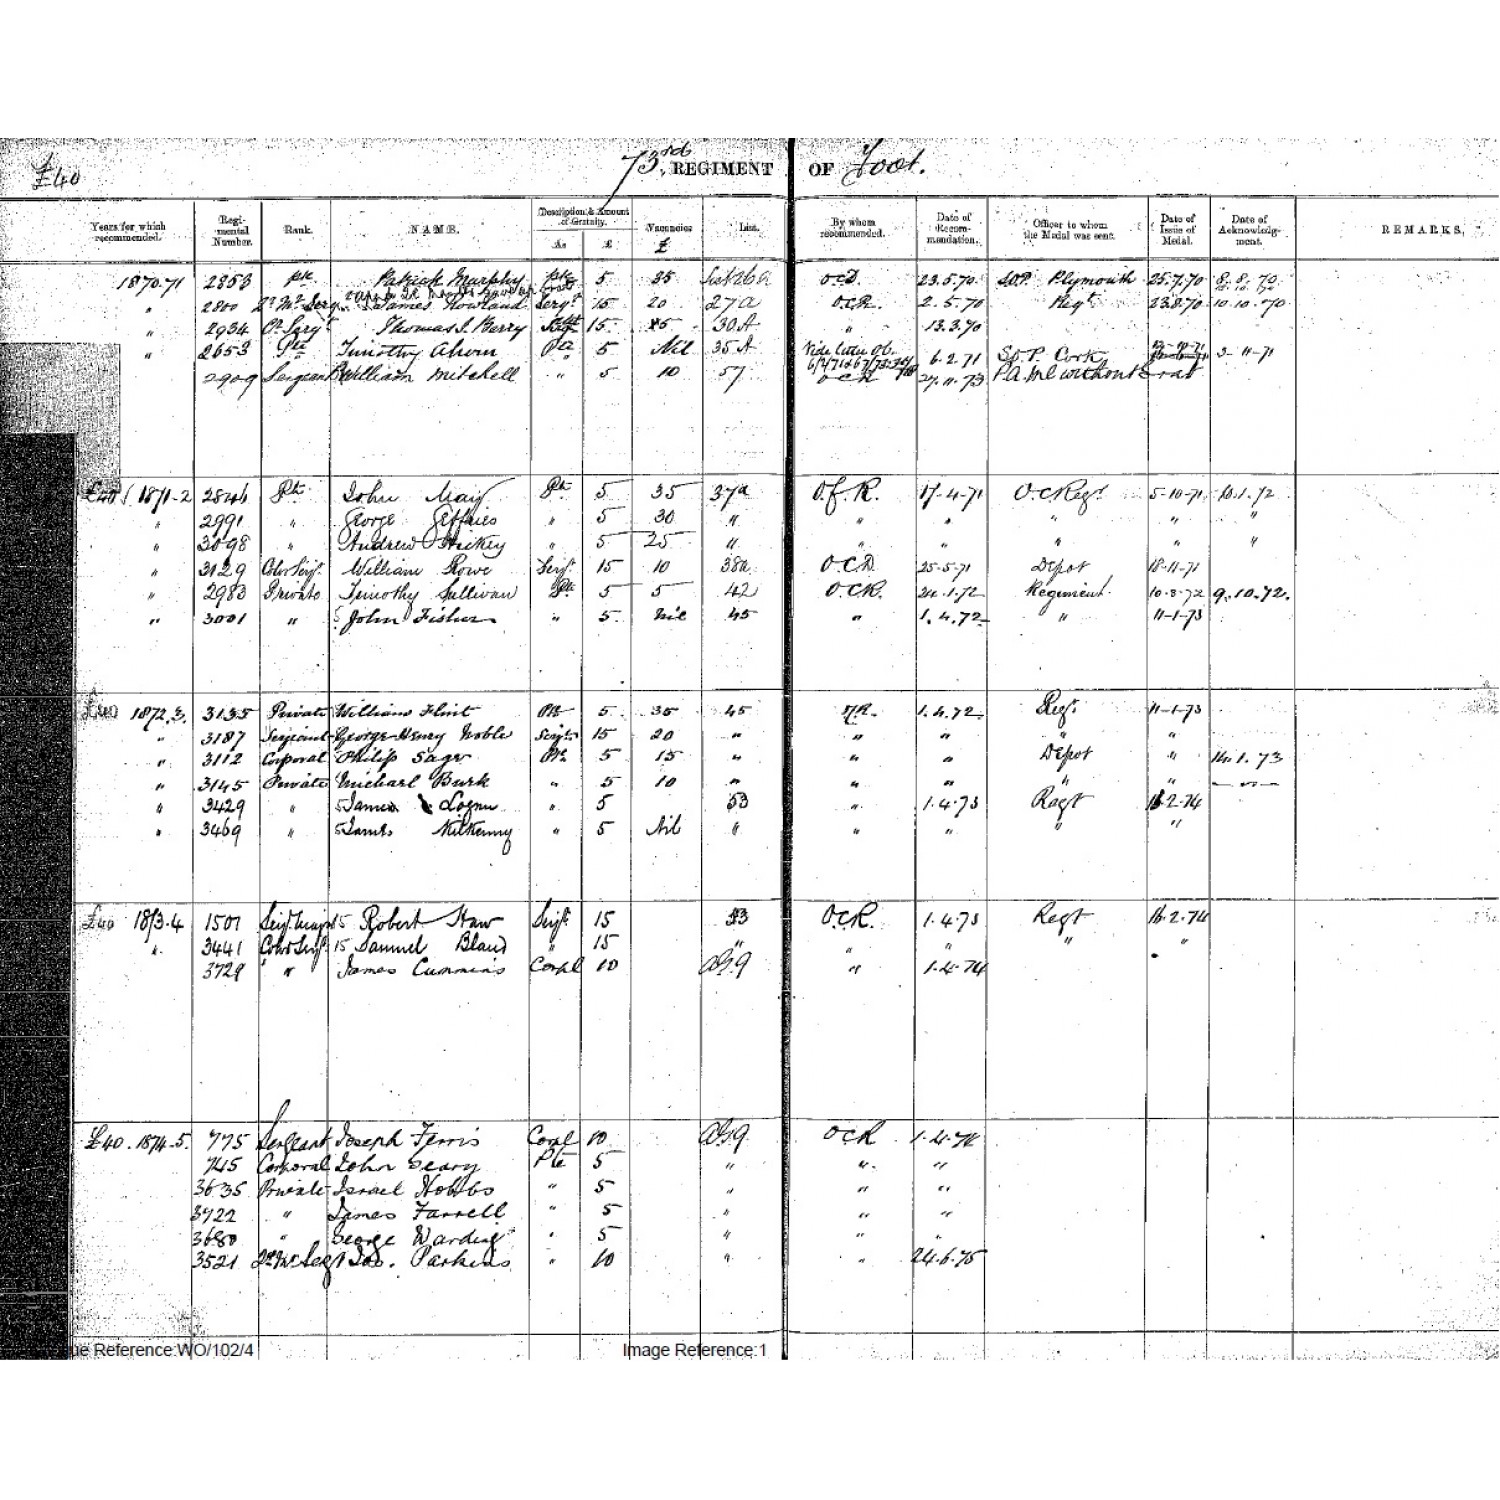 £40
73rd REGIMENT OF Foot.
Years for which recommended. Regimental Number. Rank. NAME. Description & Amount of Gratuity. As £ Vacancies £ List. By whom recommended. Date of Recommendation. Officer to whom the Medal was sent. Date of Issue of Medal. Date of Acknowledgment. REMARKS.
1870.71 2853 Pte Patrick Murphy Pte 5 35 List 26a OCD. 23.5.70 SOP. Plymouth 25.7.70 8.8.70
" 2800 Qr Mr Sergt James Rowland Sergt 15 20 27a OCR. 2.5.70 Regt 23.8.70 10.10.70
" 2934 Sergt Thomas S. Berry 15 30A " 13.3.70
" 2653 Pte Timothy Ahern Pte 5 Nil 35A Vide letter 6.2.71 SOP. Cork 3-11-71
2909 Sergeant William Mitchell " 5 10 57 OCR 27.11.73 P.A. Ml without Grat
£40 1871-2 2846 Pte John May Pte 5 35 37a O.C.R. 17-4-71 O.C Regt 5-10-71 16.1.72
" 2991 " George Jeffries " 5 30 " " " " " "
" 3098 " Andrew Hickey " 5 25 " " " " " "
" 3129 Color Sergt William Rowe Sergt 15 10 38a O.C.D. 25-5-71 Depot 18-11-71
" 2983 Private Timothy Sullivan Pte 5 5 42 O.C.R. 24.1.72 Regiment. 10-8-72 9.10.72.
" 3001 " 5 John Fisher " 5 Nil 45 " 1.4.72 " 11-1-73
£40 1872.3. 3135 Private William Flint Pte 5 35 45 1.4.72 Regt. 11-1-73
" 3187 Sergeant George Henry Noble Sergt 15 20 " " " " "
" 3112 Corporal Philip Sage Pte 5 15 " " " Depot " 14.1.73
" 3145 Private Michael Burk " 5 10 " " " " " "
" 3429 " 5 James Logan " 5 53 " 1.4.73 Regt 16.2.74
" 3469 " 5 James Kilkenny " 5 Nil " " " " "
£40 1873.4 1507 Sergt Major 15 Robert Haw Sergt 15 53 OCR. 1.4.73 Regt 16.2.74
" 3441 Color Sergt 15 Samuel Bland " 15 " " " " "
3729 " James Cummins Corpl 10 " 1.4.74
£40. 1874-5. 775 Sergeant Joseph Ferris Corpl 10 OCR 1.4.74
745 Corporal John Geary Pte 5 " " "
3635 Private Israel Hobbs " 5 " " "
3722 " James Farrell " 5 " " "
3680 " George Warding " 5 " " "
3521 Qr Mr Sergt Jas. Parkins " 10 " " 24.6.75
ue Reference:WO/102/4
Image Reference:1